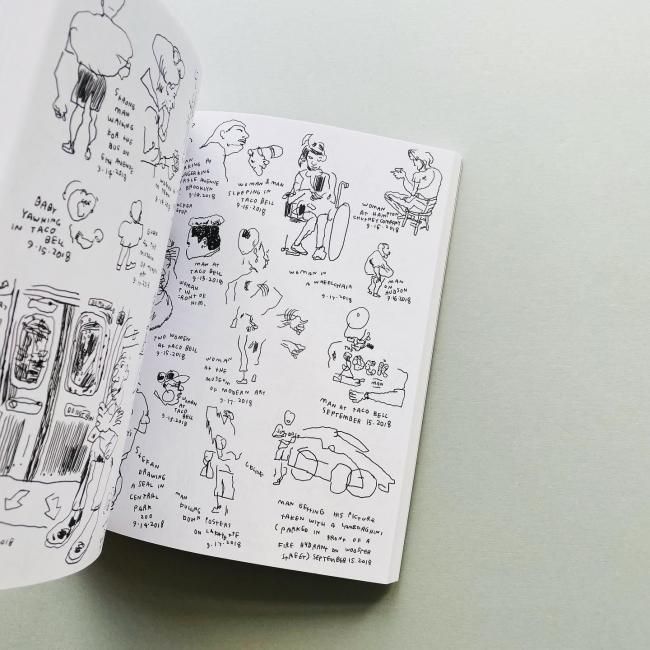 STRONG
MAN
WAITING
FOR THE
BUS ON
5TH AVENUE
9.14.2018
BABY
YAWNING
IN TACO
BELL
9.15.2018
BROOKLYN
WOMAN & MAN
SLEEPING IN
TACO BELL
9.15.2018
WOMAN
AT HAMPTON
CHUTNEY COMPANY
9.16.2018
MAN AT
TACO BELL
9.15.2018
WOMAN
IN
FRONT OF
HIM.
WOMAN IN
A WHEELCHAIR
9.17.2018
MAN
ON
HUDSON
TWO WOMEN
AT TACO BELL
9.15.2018
WOMAN
AT THE
MUSEUM
OF MODERN ART
9.17.2018
MAN AT TACO BELL
SEPTEMBER 15.2018
AT
TACO
BELL
STEFAN
DRAWING
A SEAL IN
CENTRAL
PARK
ZOO
9.14.2018
MAN
PULLING
DOWN POSTERS
ON LAFAYETTE
9.17.2018
MAN GETTING HIS PICTURE
TAKEN WITH A LAMBORGHINI
(PARKED IN FRONT OF A
FIRE HYDRANT ON WOOSTER
STREET) SEPTEMBER 15.2018